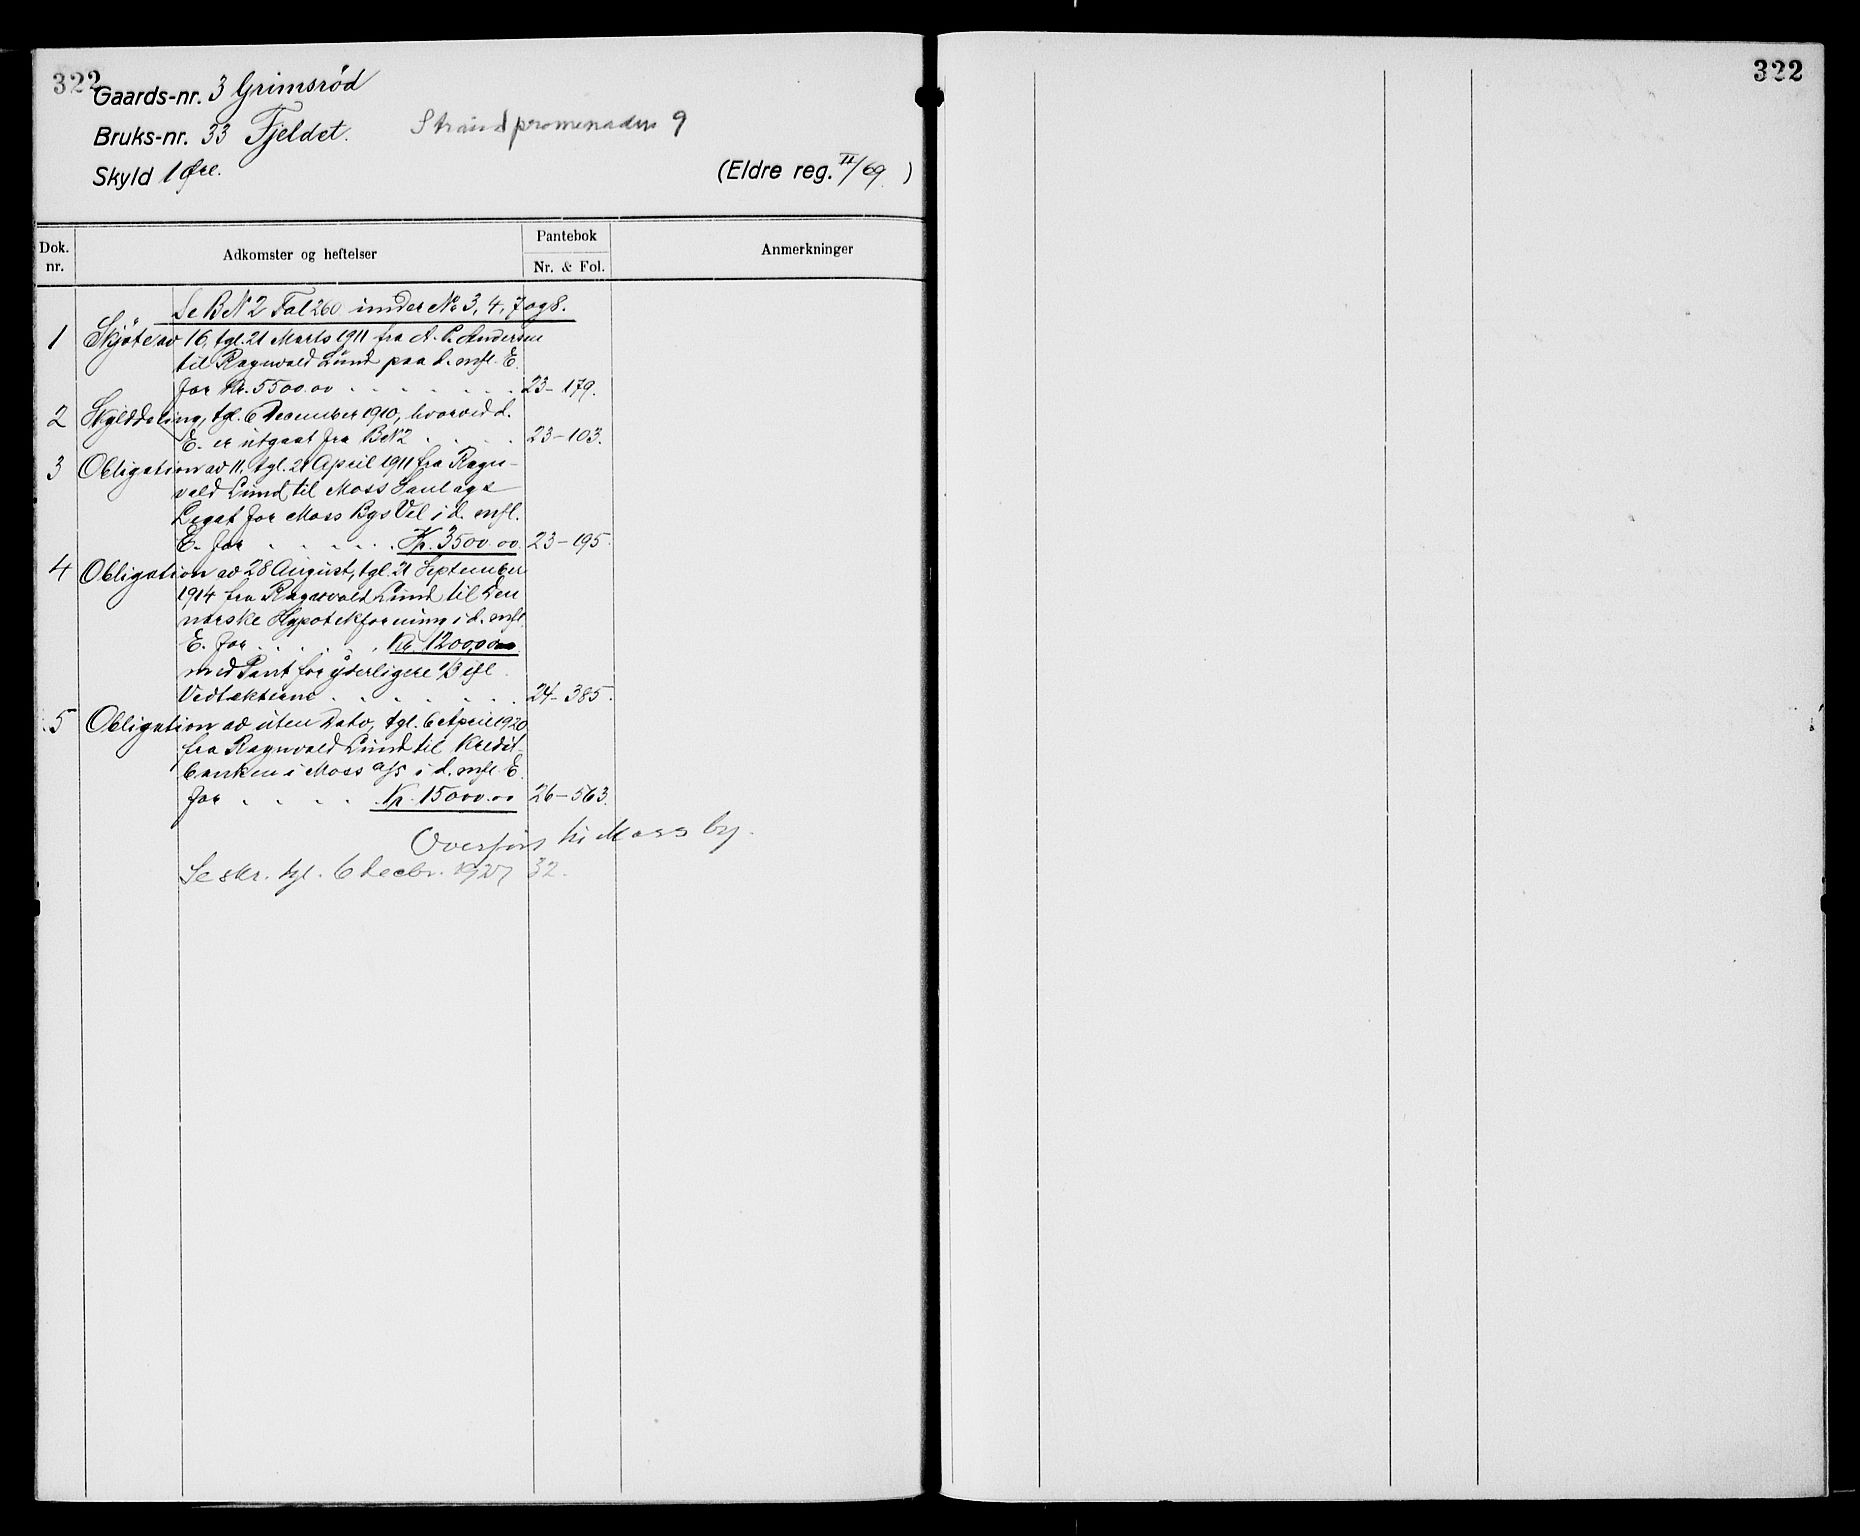 322
322
Gaards-nr. 3 Grimsröd
Bruks-nr. 33 Fjeldet. Strandpromenaden 9
Skyld 1 Øre.
(Eldre reg. II/69 )
Dok. nr. Adkomster og heftelser Pantebok Nr. & Fol. Anmerkninger
Se BN 2 Fol 260 under No 3, 4, 7 og 8.
1 Skjöte av 16, tgl. 21 Marts 1911 fra A. P. Andersen
til Ragnvald Lund paa d. mfl. E.
for Kr. 5500.00 . . . . . . . 23 - 179.
2 Skylddeling, tgl. 6 December 1910, hvorved d.
E. er utgaat fra BN 2 . . . . 23 - 103.
3 Obligation av 11, tgl. 21 April 1911 fra Ragn-
vald Lund til Moss
Legat for Moss Bys Vel i d. mfl.
E. for . . . . . . Kr. 3500.00 23 - 195.
4 Obligation av 28 August, tgl. 21 September
1914 fra Ragnvald Lund til Den
norske Hypotekforening i d. mfl.
E. for . . . . . . Kr. 12000.00
med Pant for yderligere 1/3 ifl.
Vedtækterne . . . . . . . 24 - 385.
5 Obligation av uten Dato, tgl. 6 April 1920
fra Ragnvald Lund til Kredit-
banken i Moss a/s i d. mfl. E.
for . . . . . Kr. 15000.00 26 - 563.
Overført til Moss by.
Se skr. tgl. 6 decbr. 1927 32.